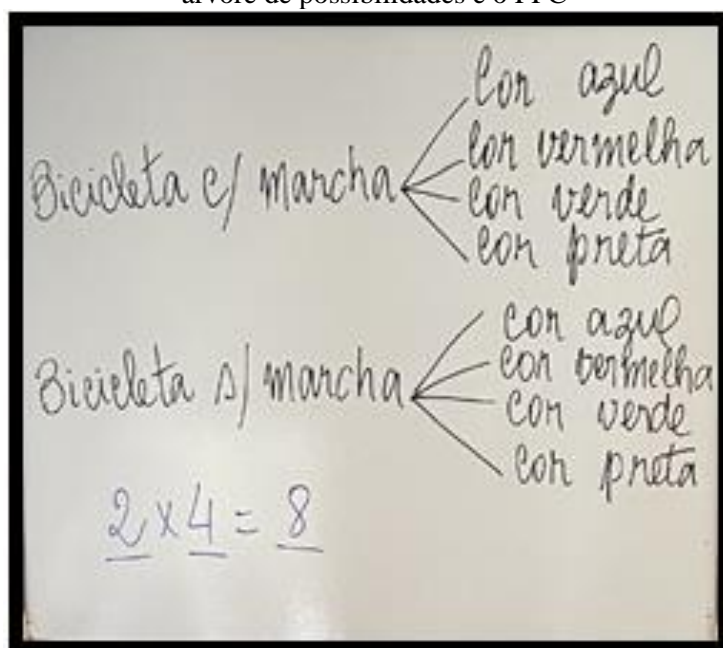 árvore de possibilidades e o PFC
Cor azul
Bicicleta c/ marcha
cor vermelha
cor verde
cor preta
Bicicleta s/ marcha
cor azul
cor vermelha
cor verde
cor preta
2 x 4 = 8